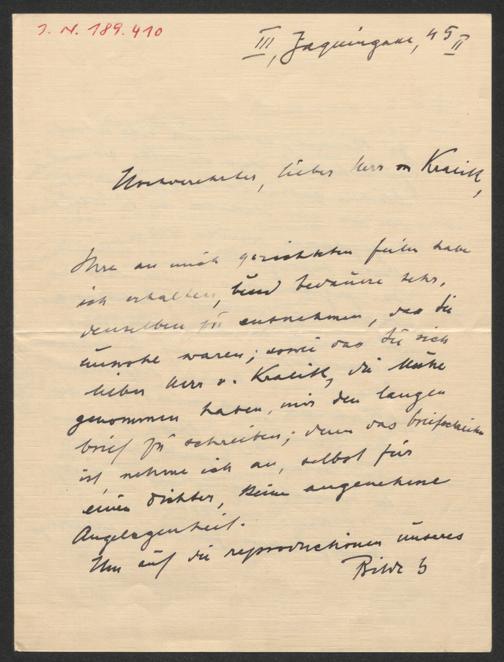 I. N. 189.410
III, Jaquingasse, 45 II
Hochverehrter, lieber Herr von Kralik,
Ihre an mich gerichteten Zeilen habe
ich erhalten, und bedauere sehr,
denselben zu entnehmen, das Sie
unwohl waren; sowie das Sie sich
lieber Herr v. Kralik, die Mühe
genommen haben, mir den langen
brief zu schreiben; denn das briefschreiben
ist, nehme ich an, selbst für
einen Dichter, keine angenehme
Angelegenheit.
Um auf die reproductionen unseres
Bildes